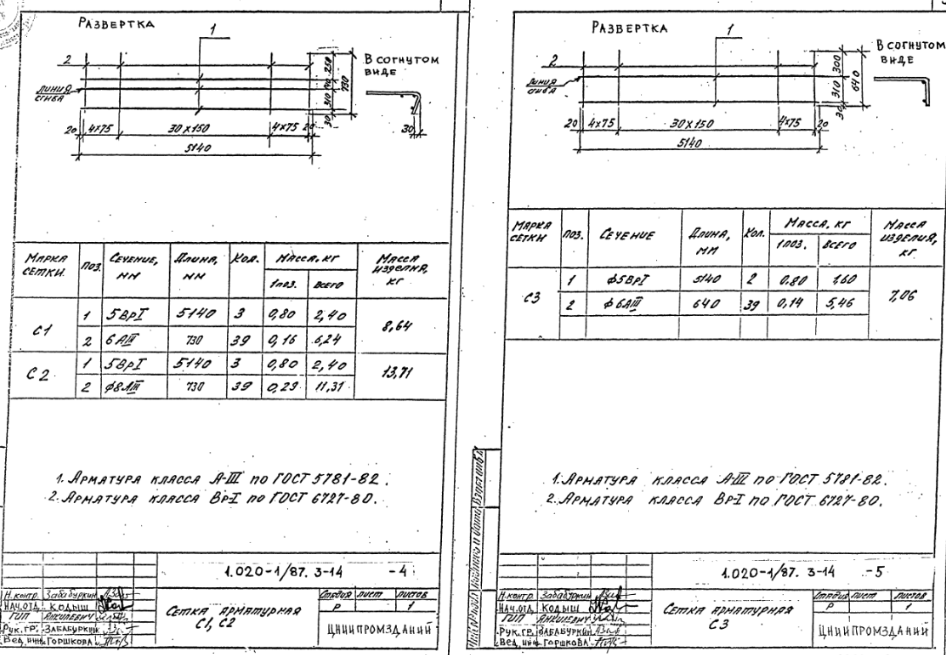 РАЗВЕРТКА
1
2
В СОГНУТОМ
ВИДЕ
ЛИНИЯ
СГИБА
250
140
310
30
730
20 4x75 30x150 4x75 20
5140
30
МАРКА СЕТКИ ПОЗ. СЕЧЕНИЕ, ММ ДЛИНА, ММ КОЛ. МАССА, КГ МАССА ИЗДЕЛИЯ, КГ
1 ПОЗ. ВСЕГО
С1 1 5ВрI 5140 3 0,80 2,40 8,64
2 6АIII 730 39 0,16 6,24
С2 1 5ВрI 5140 3 0,80 2,40 13,71
2 ф8АIII 730 39 0,29 11,31
1. АРМАТУРА КЛАССА А-III ПО ГОСТ 5781-82.
2. АРМАТУРА КЛАССА ВР-I ПО ГОСТ 6727-80.
1.020-1/87. 3-14 -4
Н.контр. Забабуркин
НАЧ.ОТД. КОДЫШ
ГИП
РУК. ГР. ЗАБАБУРКИН
ВЕД. ИНЖ. ГОРШКОВА
СЕТКА АРМАТУРНАЯ
С1, С2
Стадия лист листов
Р 1
ЦНИИПРОМЗДАНИЙ
РАЗВЕРТКА
1
2
В СОГНУТОМ
ВИДЕ
ЛИНИЯ
СГИБА
300
310
30
640
20 4x75 30x150 4x75 20
5140
МАРКА СЕТКИ ПОЗ. СЕЧЕНИЕ ДЛИНА, ММ КОЛ. МАССА, КГ МАССА ИЗДЕЛИЯ, КГ
1 ПОЗ. ВСЕГО
С3 1 ф5ВрI 5140 2 0,80 1,60 7,06
2 ф6АIII 640 39 0,14 5,46
1. АРМАТУРА КЛАССА А-III ПО ГОСТ 5781-82.
2. АРМАТУРА КЛАССА ВР-I ПО ГОСТ 6727-80.
1.020-1/87. 3-14 -5
Н.контр. Забабуркин
НАЧ.ОТД. КОДЫШ
ГИП
РУК. ГР. ЗАБАБУРКИН
ВЕД. ИНЖ. ГОРШКОВА
СЕТКА АРМАТУРНАЯ
С3
Стадия лист листов
Р 1
ЦНИИПРОМЗДАНИЙ